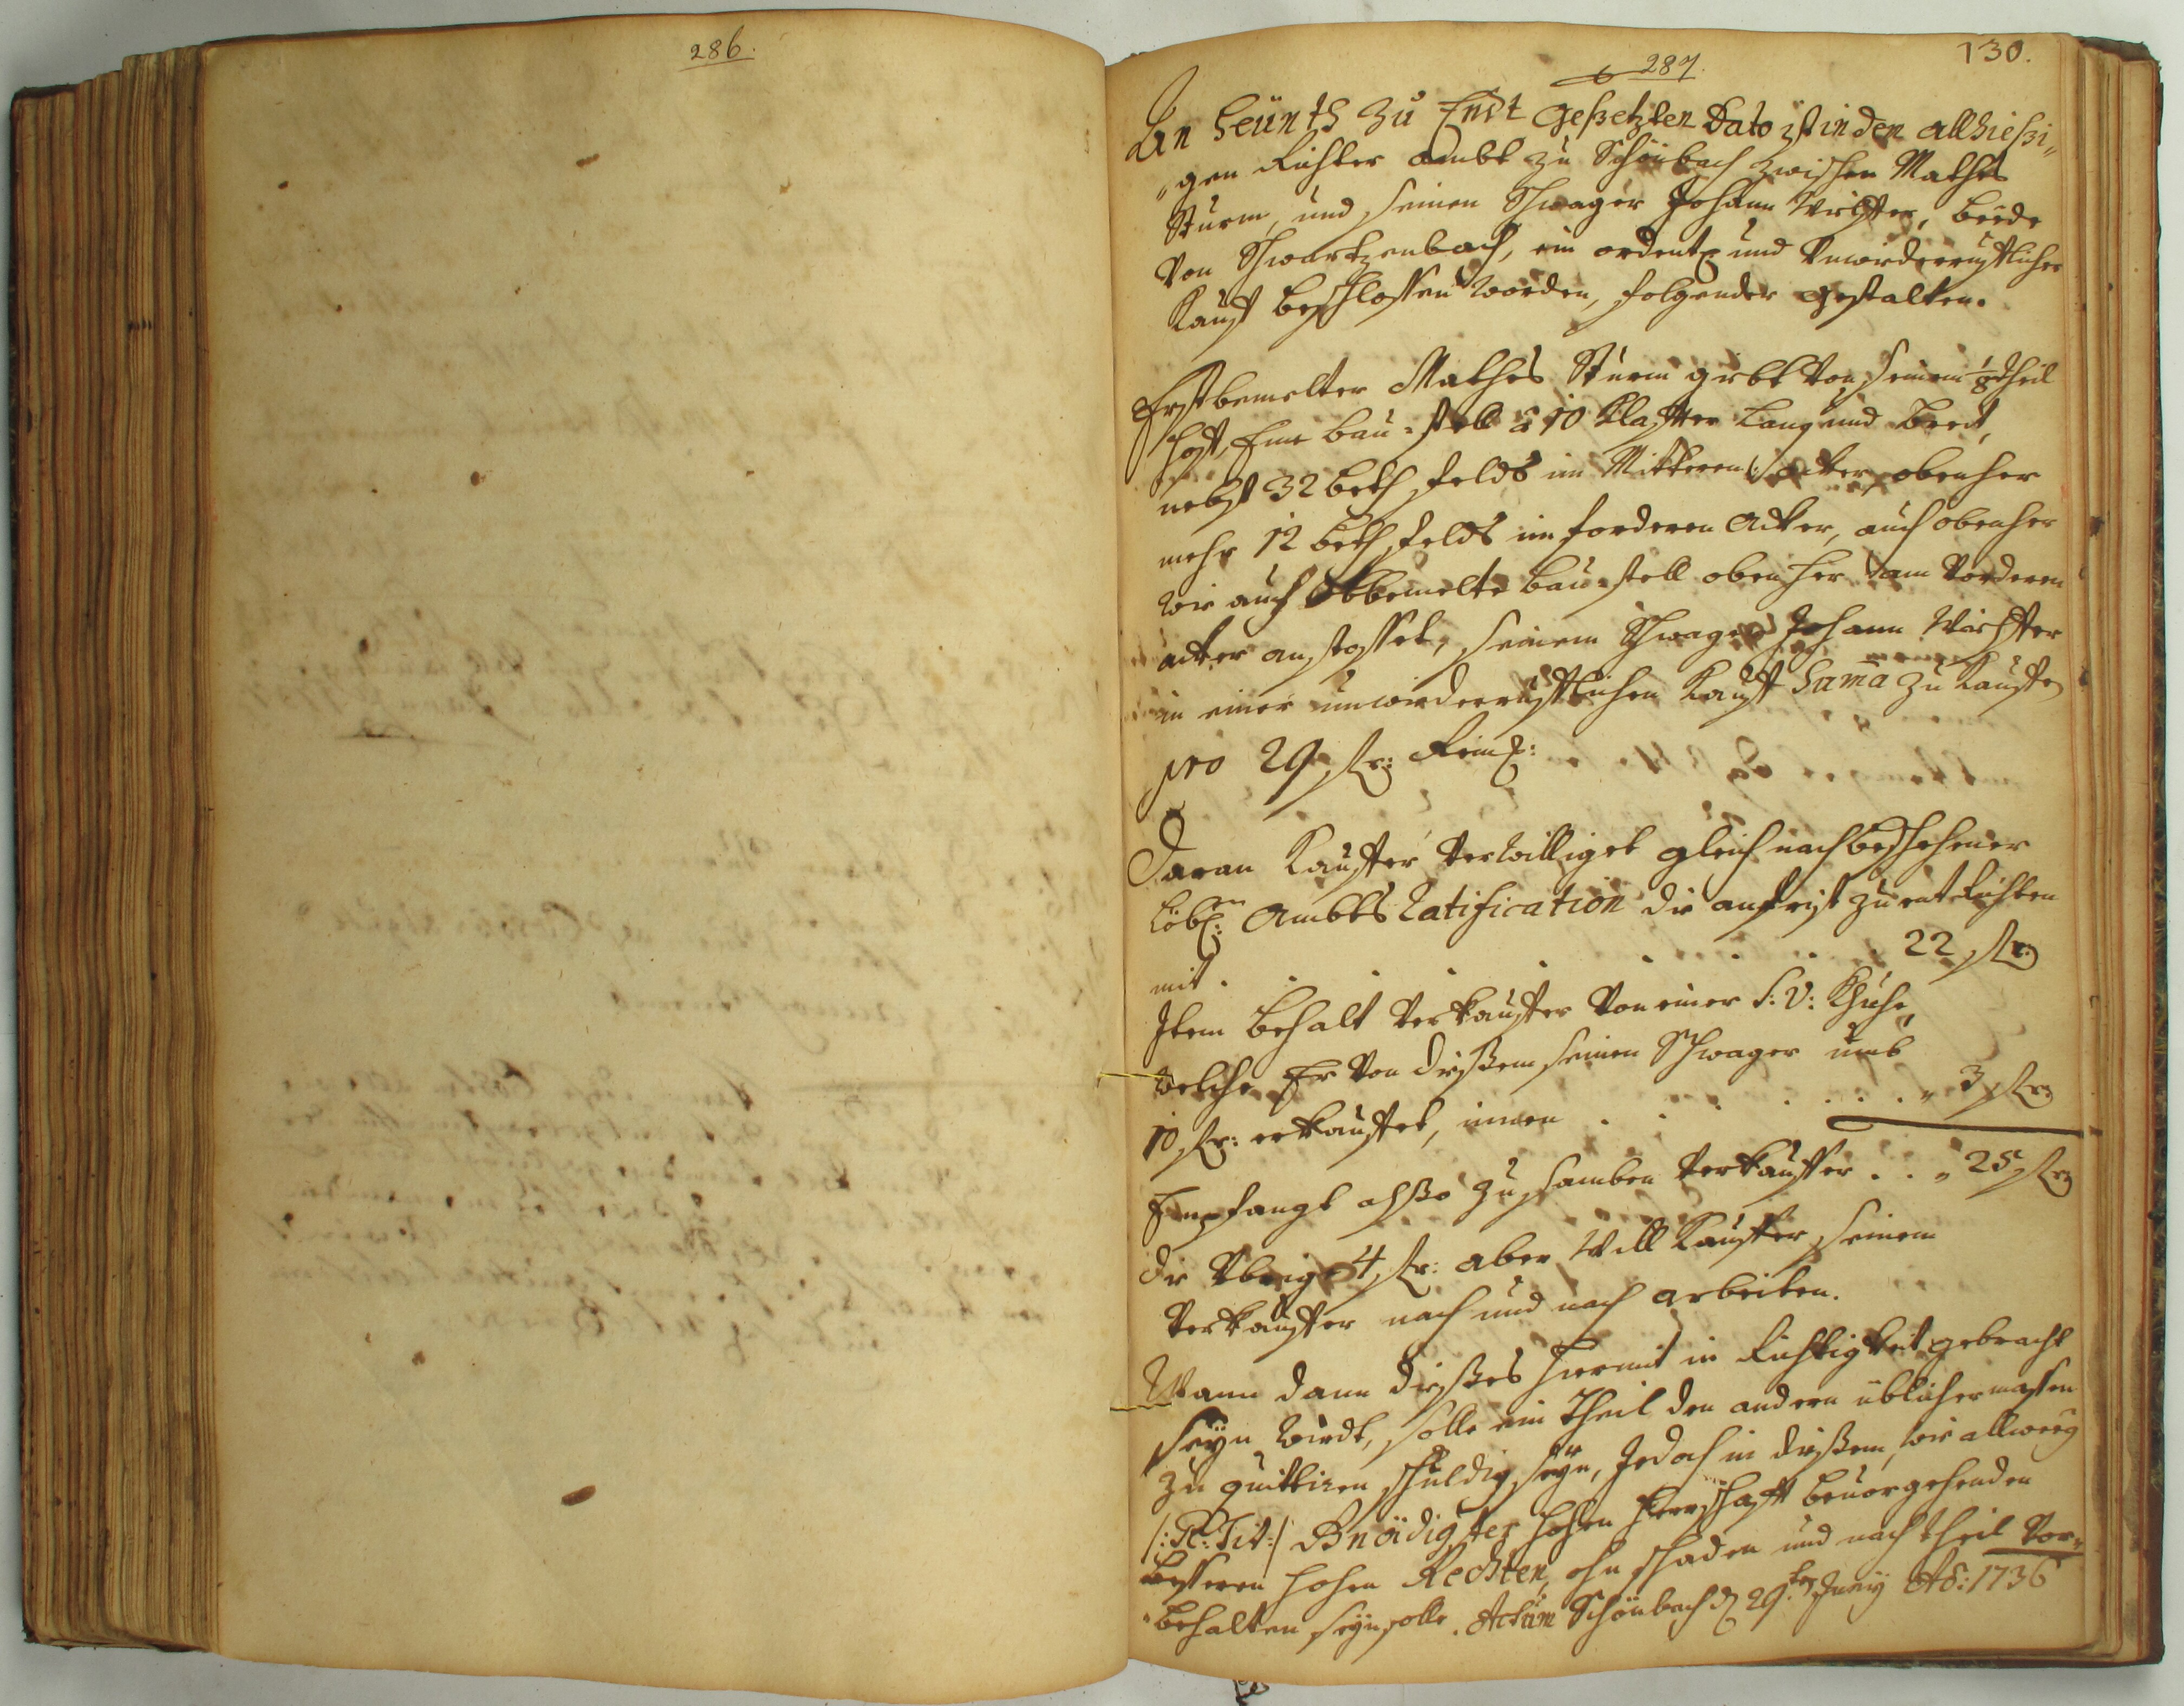 286.
287.
130.
An heünth zu Endt geßetzten Dato ist in den allhießi„
„gen Richter Ambt zu Schönbach zwischen Mathes
Sturm, und seinen Schwager Johann Wächter, beede
von Schwartzenbach, ein ordentl. und Unwiderruflicher
Kauff beschlossen worden, folgender gestalten.
Erstbemelter Mathes Sturm gibt von seinem 1/8 theil
Hoff, Eine bau-stell à 10 Klaffter lang und breit,
nebst 32 beth felds im Mitteren acker, obenher
mehr 12 beth felds im forderen Acker, auch obenher
wie auch Obbemelte bau-stell oben her am Vorderen
acker anstosset, seinem Schwager Johann Wächter
in einer unwiderrufflichen Kauff Suma zu Kauffen
pro 29 fr: Reinl:
Daran Kauffer verwilliget gleich nach beschehener
Löbl: Ambts Ratification die anfrist zu entrichten
mit . . . . . . . 22 fr:
Item behalt Verkauffer von einer S: V: Khuhe,
welche Er von dießem seinen Schwager umb
10 fr: erkauffet, innen . . . . . . „ 3 fr:
Empfangt alßo zusamben Verkauffer . . „ 25 fr:
die Vbrige 4 fr: aber Will Kauffer seinem
Verkauffer nach und nach arbeiten.
Wann dann dießes hiermit in Richtigkeit gebracht
seyn wirdt, solle ein Theil den andern üblichermassen
zu quittiren schuldig seyn, Jedoch in dießem, wie allweeg
/: P: Tit :/ Gnädigster hohen Herrschafft bevorgehenden
besseren hohen Rechten, ohn schaden und nachtheil Vor-
„behalten seyn solle. Actum Schönbach d. 29.ten Juny Ao: 1736